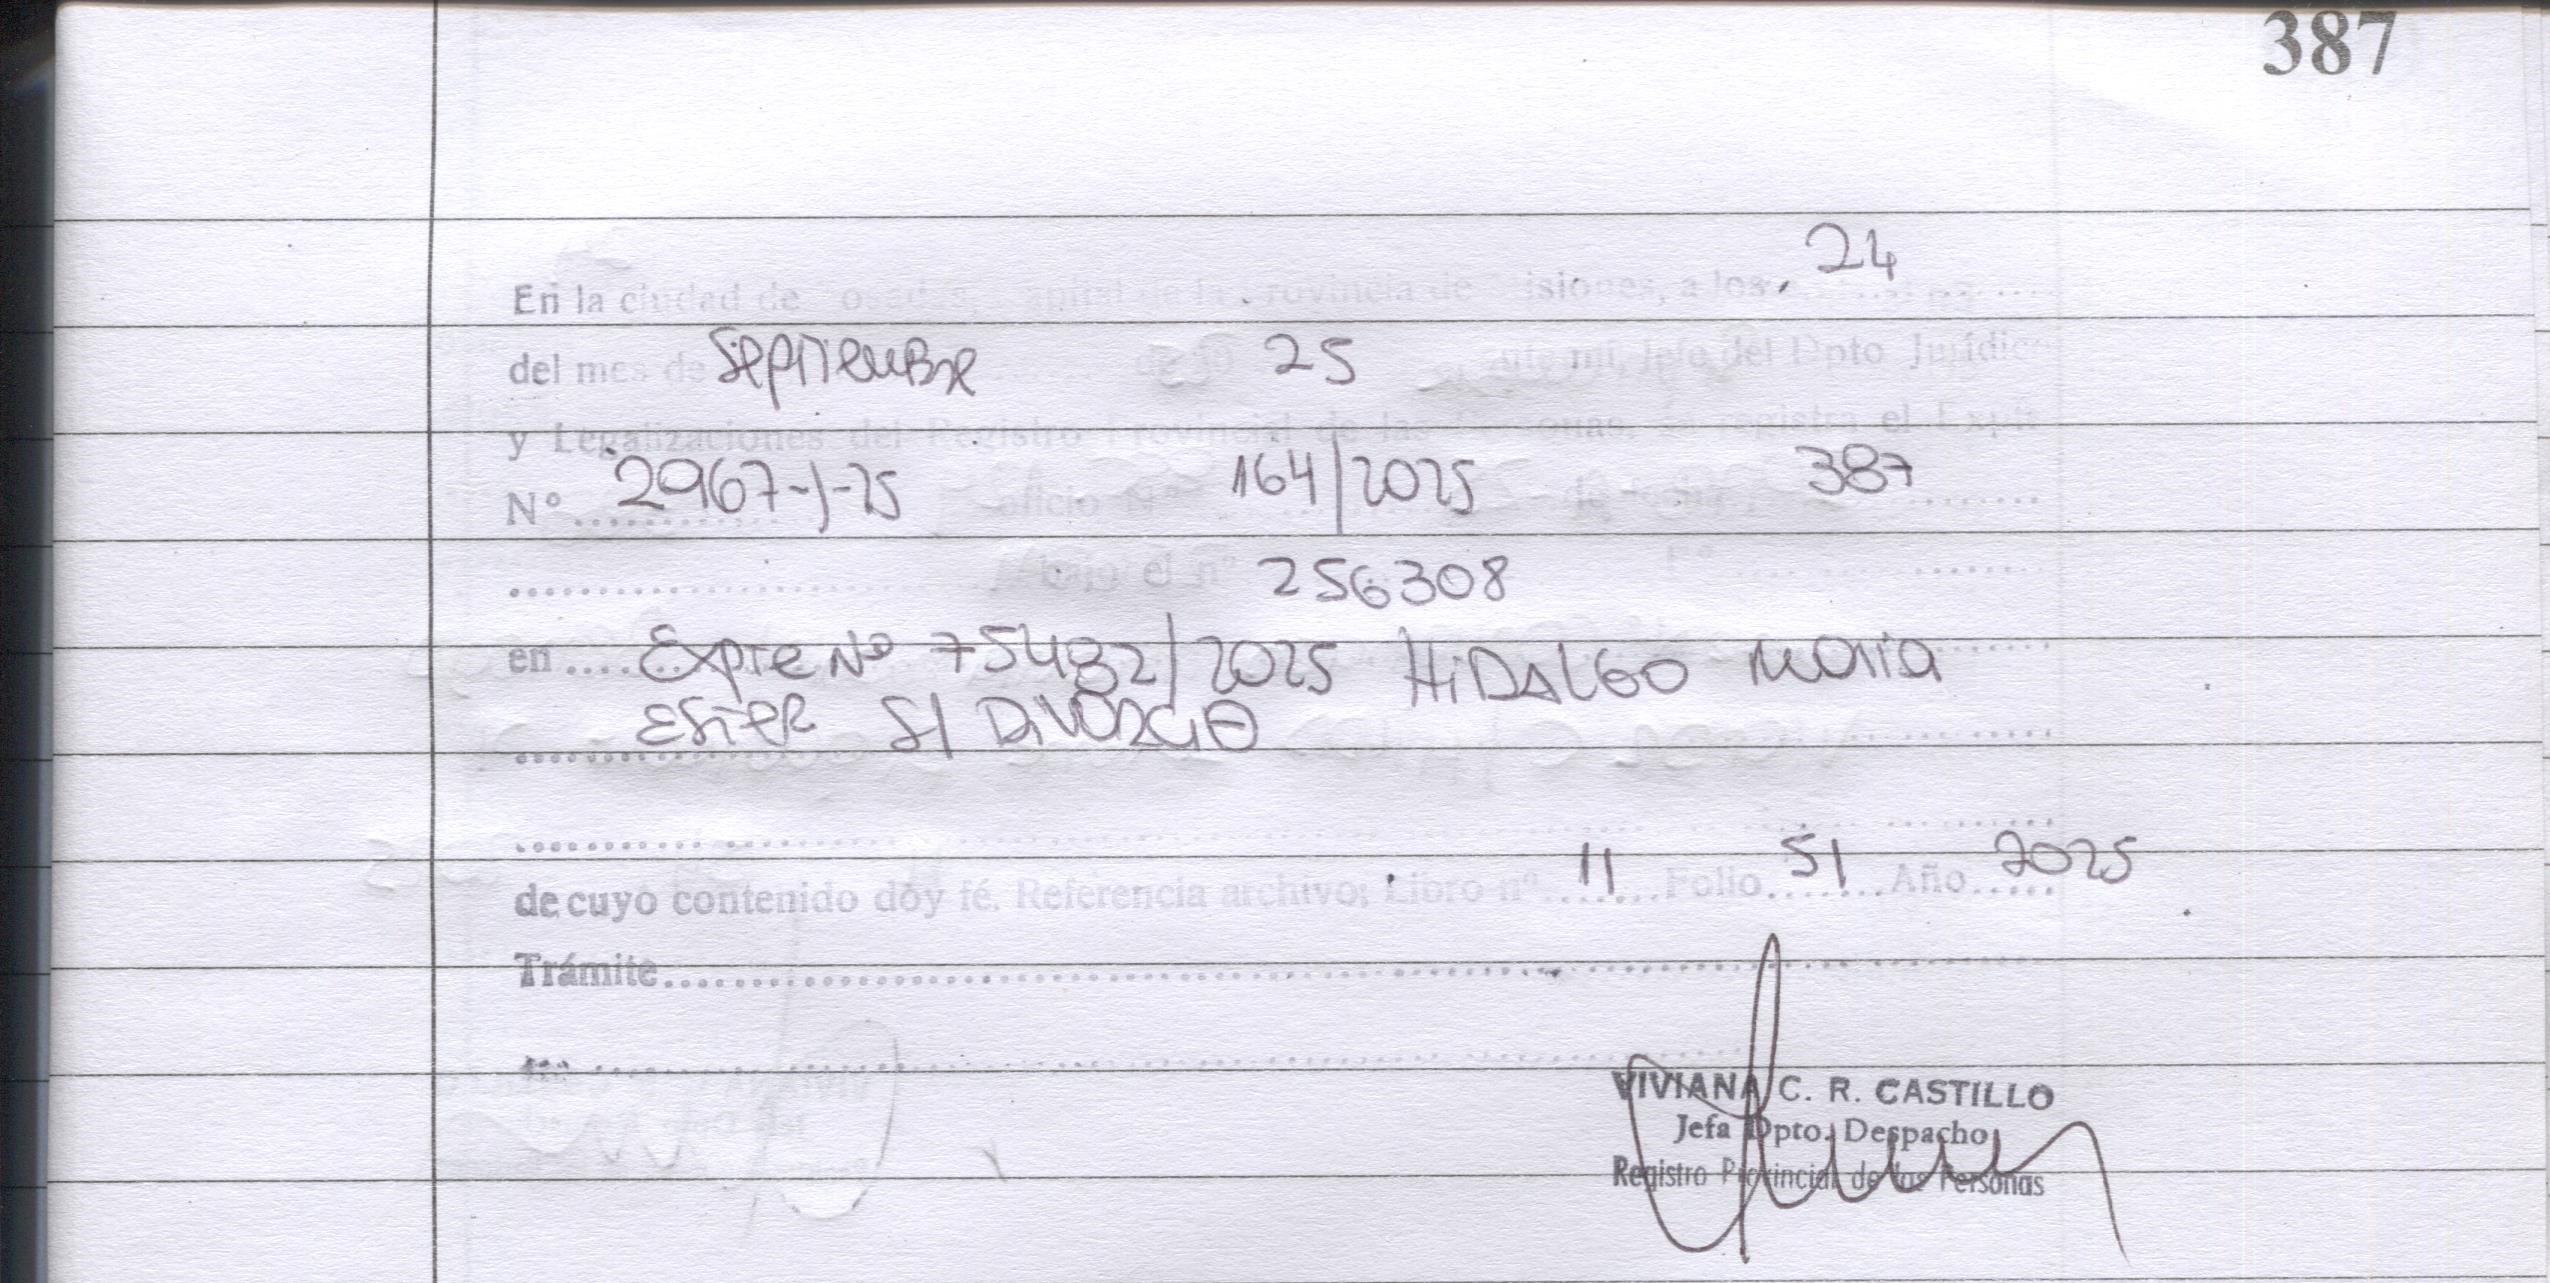 387
En la ciudad de Posadas, capital de la Provincia de Misiones, a los 24
del mes de Septiembre de 25 ante mi, Jefe del Dpto Jurídic
y Legalizaciones del Registro Provincial de las Personas, se registra el Expte
Nº 2967-J-25 oficio Nº 164/2025 387
bajo el nº 256308 Fº
en Expte Nº 75482/2025 HiDALGO Maria
Ester S/ DiVORCIO
de cuyo contenido doy fé. Referencia archivo: Libro nº 11 Folio 51 Año 2025
Trámite
VIVIANA C. R. CASTILLO
Jefa Dpto. Despacho
Registro Provincial de las Personas